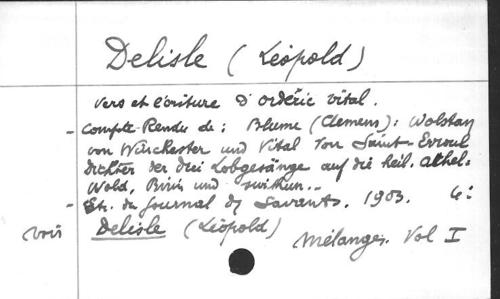 Delisle (Léopold)
Vers et écriture d'Orderic Vital.
- Compte-Rendu de : Blume (Clemens) : Wolstan
von Winchester und Vital von Saint-Evroul
Dichter der drei Lobgesänge auf die heil. Athel-
wold, Birin und Swithun...
- Et. du Journal des Savants. 1903. 4:
voir Delisle (Léopold) Mélanges. Vol I